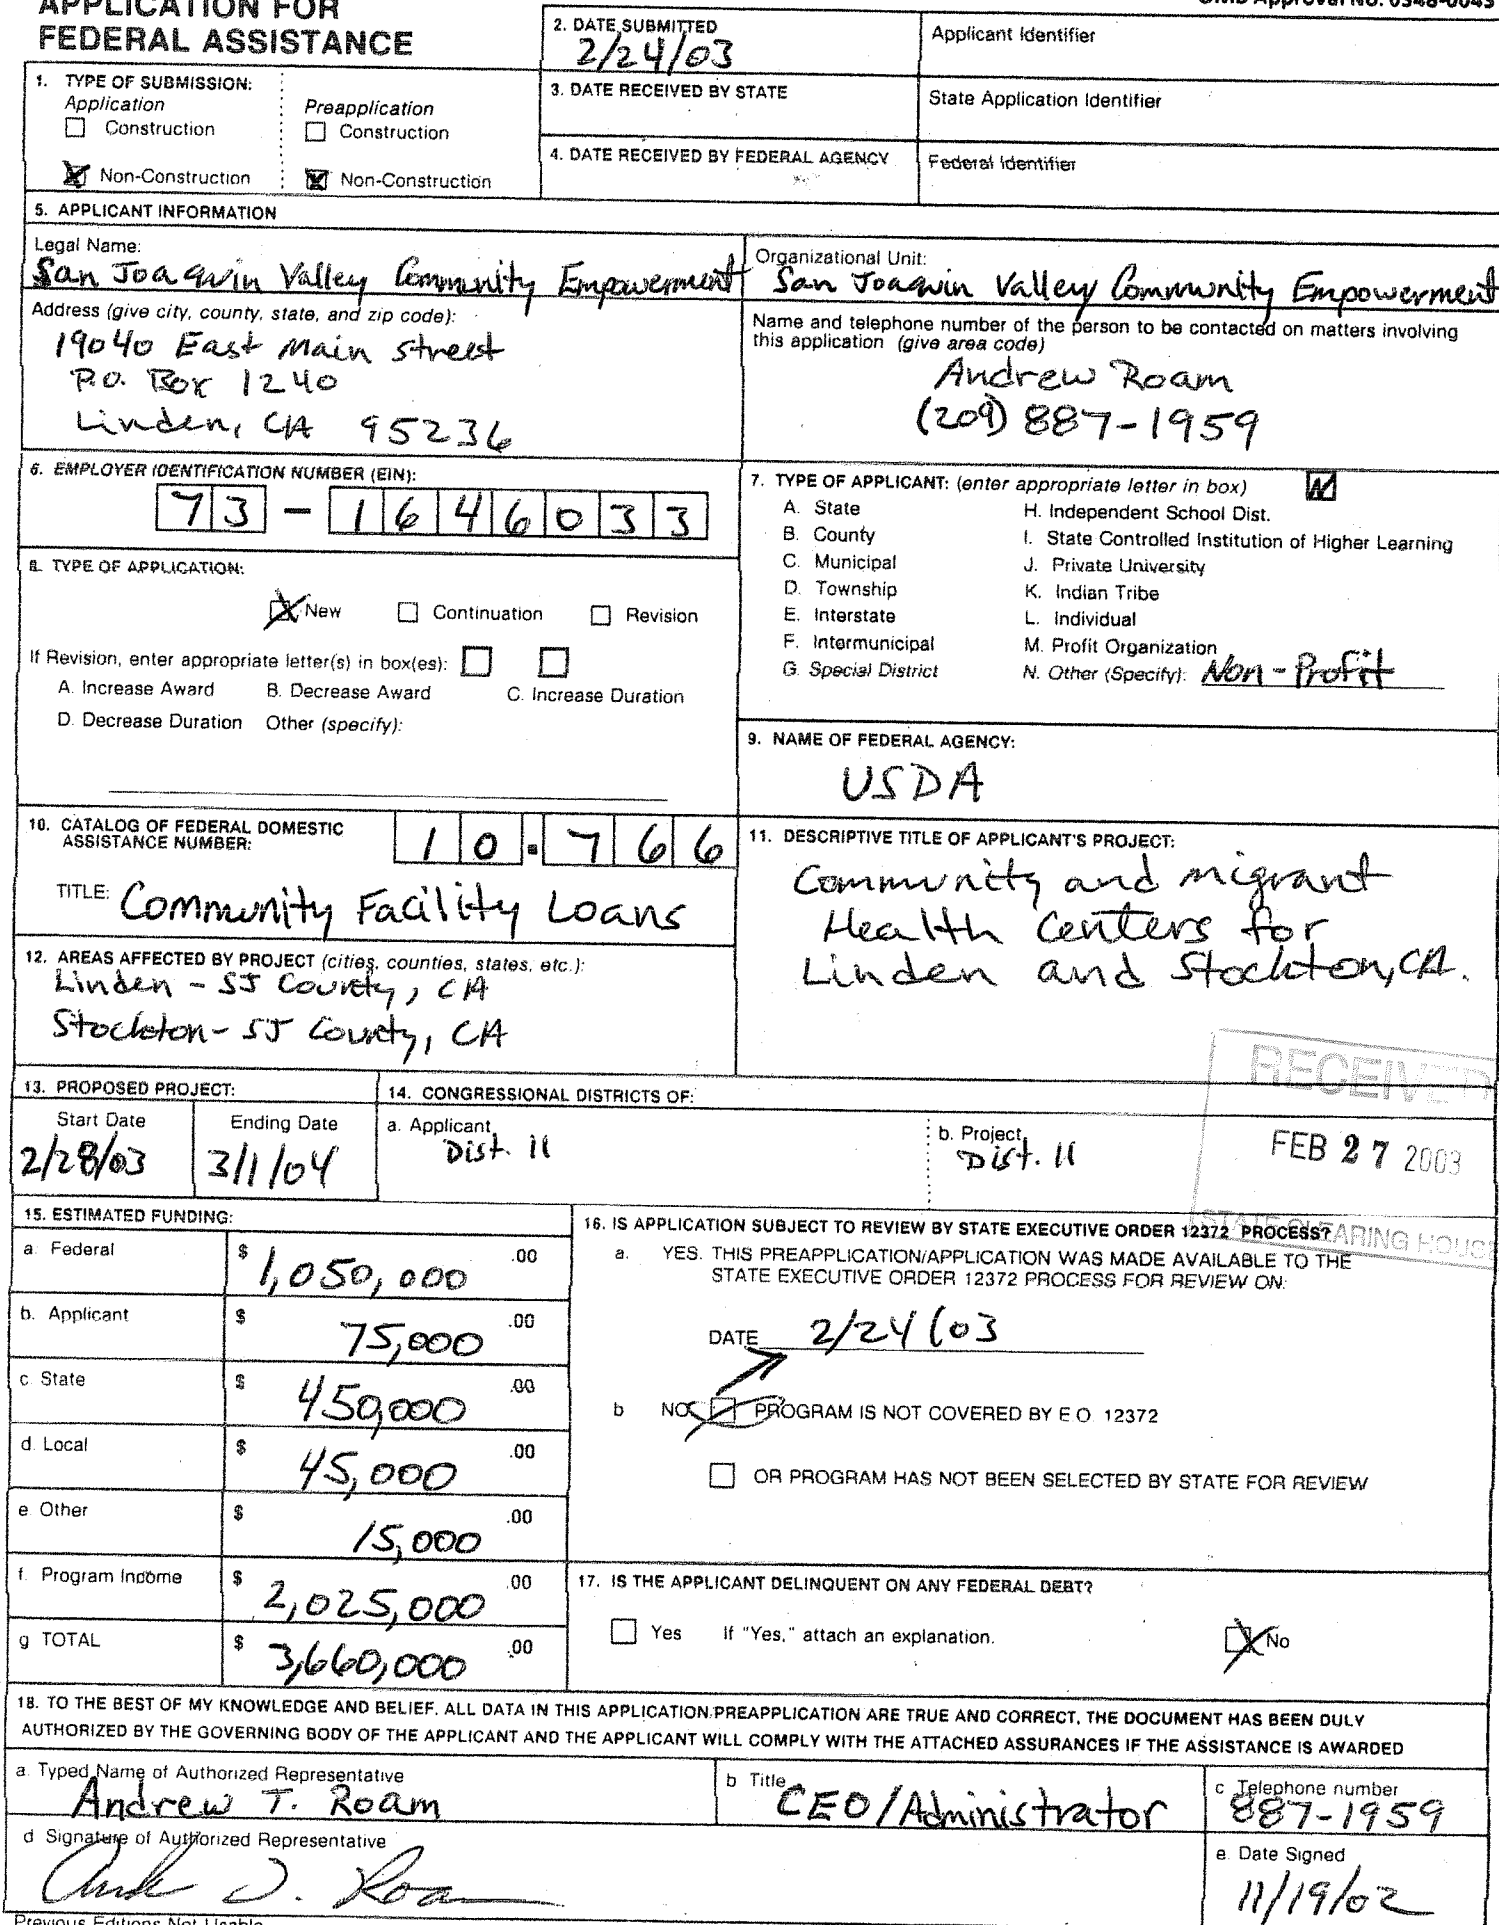 APPLICATION FOR
FEDERAL ASSISTANCE
OMB Approval No. 0348-0043
2. DATE SUBMITTED
2/24/03
Applicant Identifier
1. TYPE OF SUBMISSION:
Application
Preapplication
Construction
Construction
Non-Construction
Non-Construction
3. DATE RECEIVED BY STATE
State Application Identifier
4. DATE RECEIVED BY FEDERAL AGENCY
Federal Identifier
5. APPLICANT INFORMATION
Legal Name:
San Joaquin Valley Community Empowerment
Organizational Unit:
San Joaquin Valley Community Empowerment
Address (give city, county, state, and zip code):
19040 East Main Street
P.O. Box 1240
Linden, CA 95236
Name and telephone number of the person to be contacted on matters involving
this application (give area code)
Andrew Roam
(209) 887-1959
6. EMPLOYER IDENTIFICATION NUMBER (EIN):
73-1646033
7. TYPE OF APPLICANT: (enter appropriate letter in box)
A. State
B. County
C. Municipal
D. Township
E. Interstate
F. Intermunicipal
G. Special District
H. Independent School Dist.
I. State Controlled Institution of Higher Learning
J. Private University
K. Indian Tribe
L. Individual
M. Profit Organization
N. Other (Specify): Non-Profit
8. TYPE OF APPLICATION:
New Continuation Revision
If Revision, enter appropriate letter(s) in box(es):
A. Increase Award B. Decrease Award C. Increase Duration
D. Decrease Duration Other (specify):
9. NAME OF FEDERAL AGENCY:
USDA
10. CATALOG OF FEDERAL DOMESTIC
ASSISTANCE NUMBER:
10.766
TITLE: Community Facility Loans
11. DESCRIPTIVE TITLE OF APPLICANT'S PROJECT:
Community and migrant
Health Centers for
Linden and Stockton, CA.
12. AREAS AFFECTED BY PROJECT (cities, counties, states, etc.):
Linden - SJ County, CA
Stockton - SJ County, CA
RECEIVED
FEB 27 2003
STATE CLEARING HOUSE
13. PROPOSED PROJECT:
Start Date
2/28/03
Ending Date
3/1/04
14. CONGRESSIONAL DISTRICTS OF:
a. Applicant
Dist. 11
b. Project
Dist. 11
15. ESTIMATED FUNDING:
a. Federal $ 1,050,000 .00
b. Applicant $ 75,000 .00
c. State $ 450,000 .00
d. Local $ 45,000 .00
e. Other $ 15,000 .00
f. Program Income $ 2,025,000 .00
g TOTAL $ 3,660,000 .00
16. IS APPLICATION SUBJECT TO REVIEW BY STATE EXECUTIVE ORDER 12372 PROCESS?
a. YES. THIS PREAPPLICATION/APPLICATION WAS MADE AVAILABLE TO THE
STATE EXECUTIVE ORDER 12372 PROCESS FOR REVIEW ON:
DATE 2/24/03
b NO. PROGRAM IS NOT COVERED BY E O. 12372
OR PROGRAM HAS NOT BEEN SELECTED BY STATE FOR REVIEW
17. IS THE APPLICANT DELINQUENT ON ANY FEDERAL DEBT?
Yes If "Yes," attach an explanation. No
18. TO THE BEST OF MY KNOWLEDGE AND BELIEF, ALL DATA IN THIS APPLICATION/PREAPPLICATION ARE TRUE AND CORRECT, THE DOCUMENT HAS BEEN DULY
AUTHORIZED BY THE GOVERNING BODY OF THE APPLICANT AND THE APPLICANT WILL COMPLY WITH THE ATTACHED ASSURANCES IF THE ASSISTANCE IS AWARDED
a. Typed Name of Authorized Representative
Andrew T. Roam
b Title
CEO/Administrator
c Telephone number
887-1959
d Signature of Authorized Representative
e. Date Signed
11/19/02
Previous Editions Not Usable